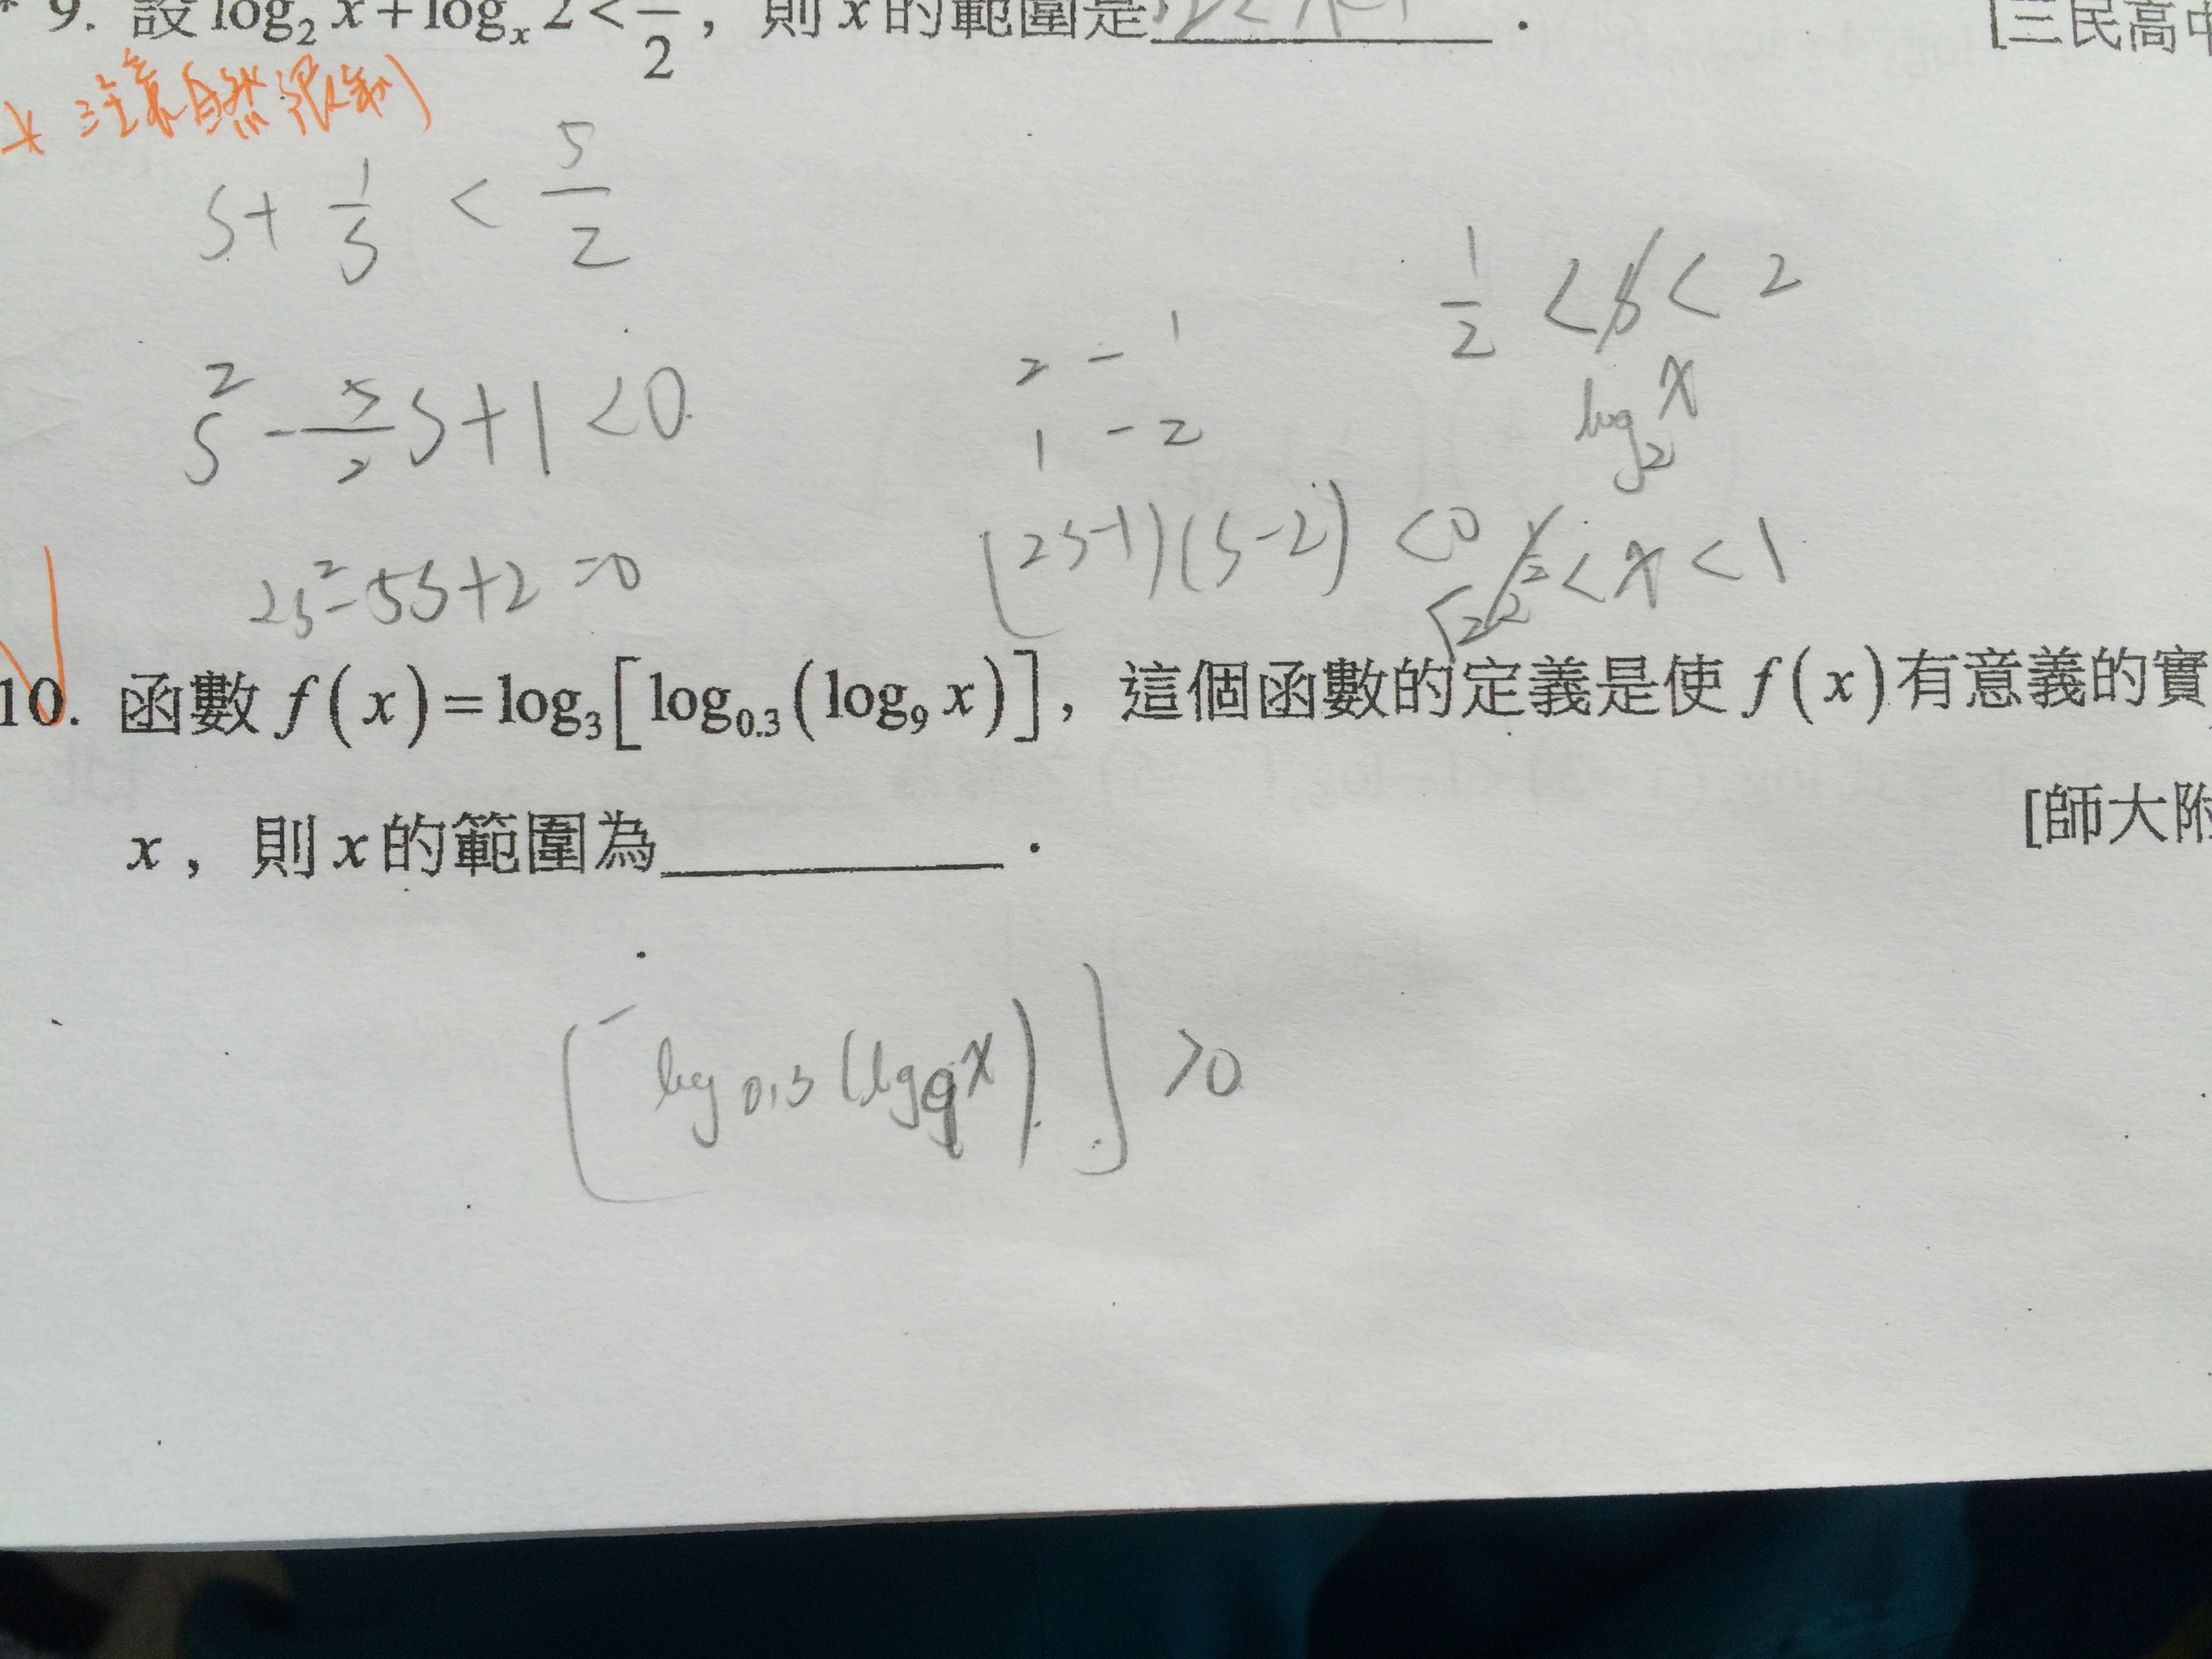 9. 設 log₂ x + logₓ 2 < 5/2，則 x 的範圍是 ．[三民高中
* 注意自然限制
s + 1/s < 5/2
1/2 < s < 2
log₂ x
s² - 5/2 s + 1 < 0
2 - 1
1 - 2
2s² - 5s + 2 = 0
(2s-1)(s-2) < 0
< x < 1
10. 函數 f(x) = log₃[log₀.₃(log₉ x)]，這個函數的定義是使 f(x) 有意義的實
x，則 x 的範圍為 ．[師大附
[log₀.₃(log₉ x)] > 0